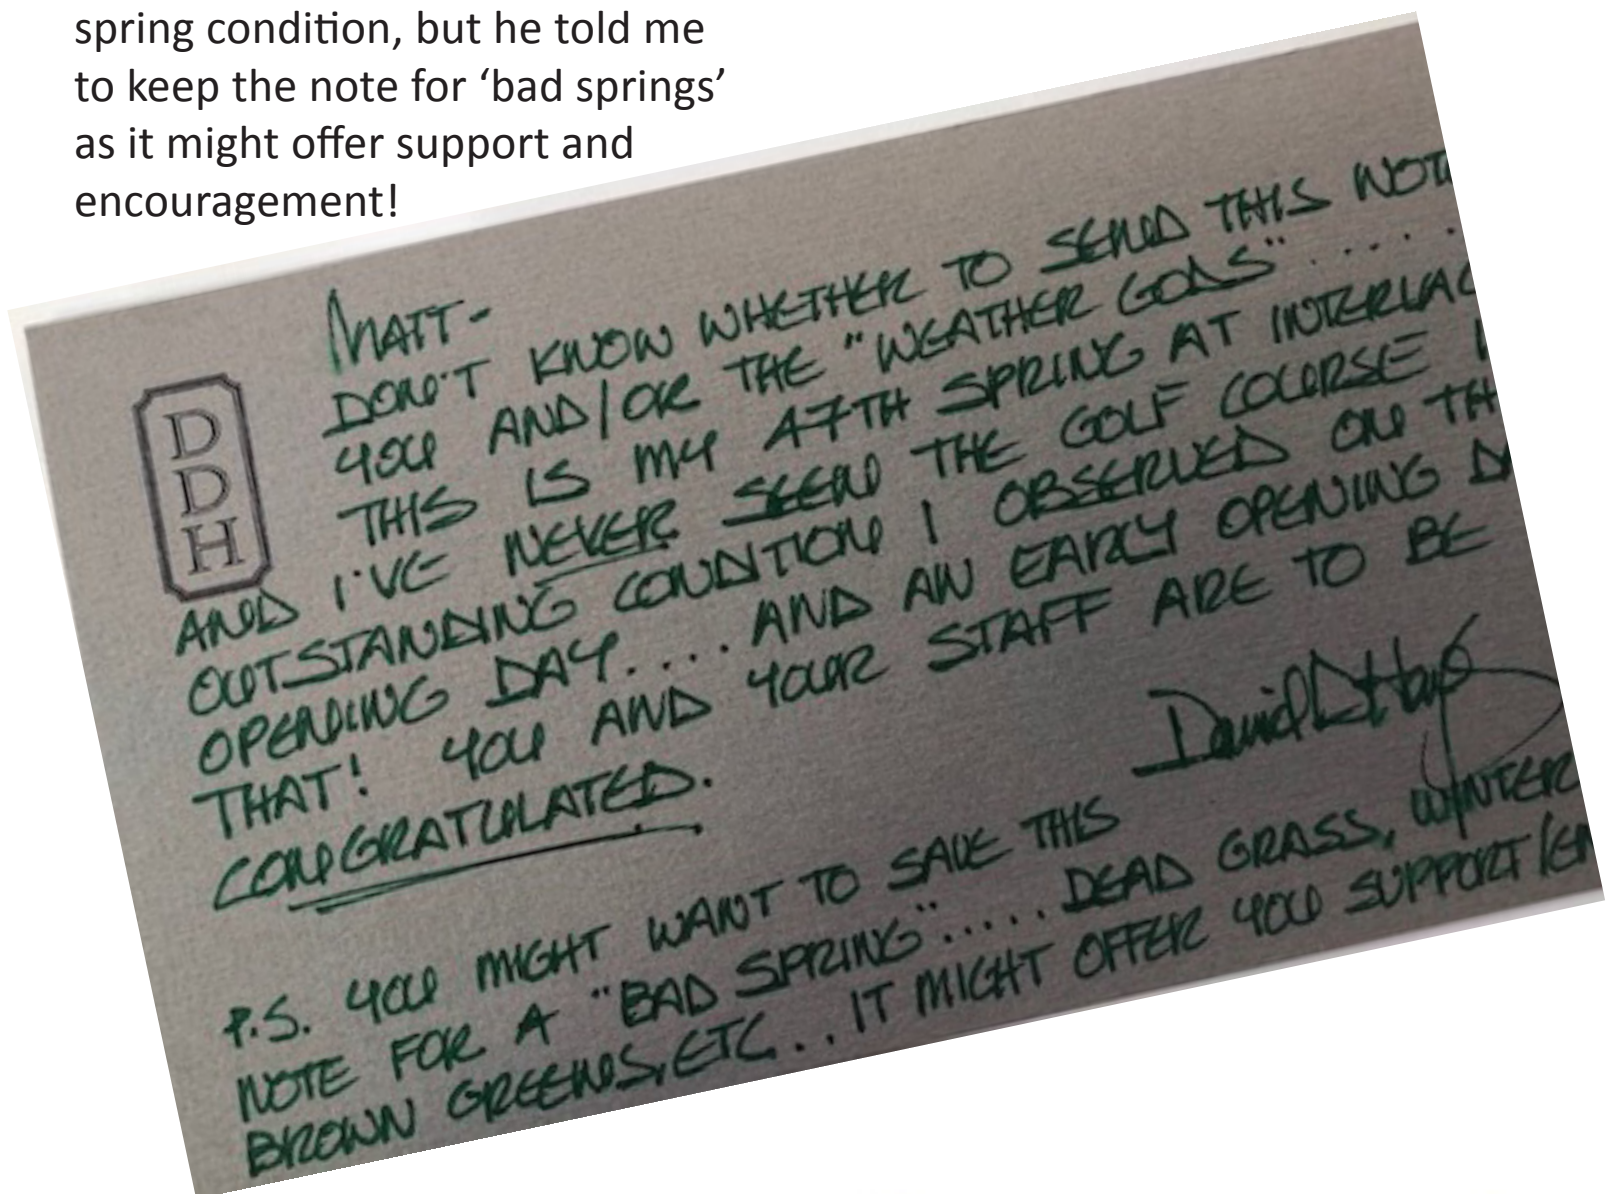 spring condition, but he told me
to keep the note for ‘bad springs’
as it might offer support and
encouragement!
D
D
H
MATT-
DON'T KNOW WHETHER TO SEND THIS NOT
YOU AND/OR THE "WEATHER GODS".....
THIS IS MY 47TH SPRING AT INTERLAC
AND I'VE NEVER SEEN THE GOLF COURSE
OUTSTANDING CONDITION I OBSERVED ON TH
OPENING DAY.... AND AN EARLY OPENING DA
THAT! YOU AND YOUR STAFF ARE TO BE
CONGRATULATED.
David D Hays
P.S. YOU MIGHT WANT TO SAVE THIS
NOTE FOR A "BAD SPRING"..... DEAD GRASS, WINTER
BROWN GREENS, ETC... IT MIGHT OFFER YOU SUPPORT/EN